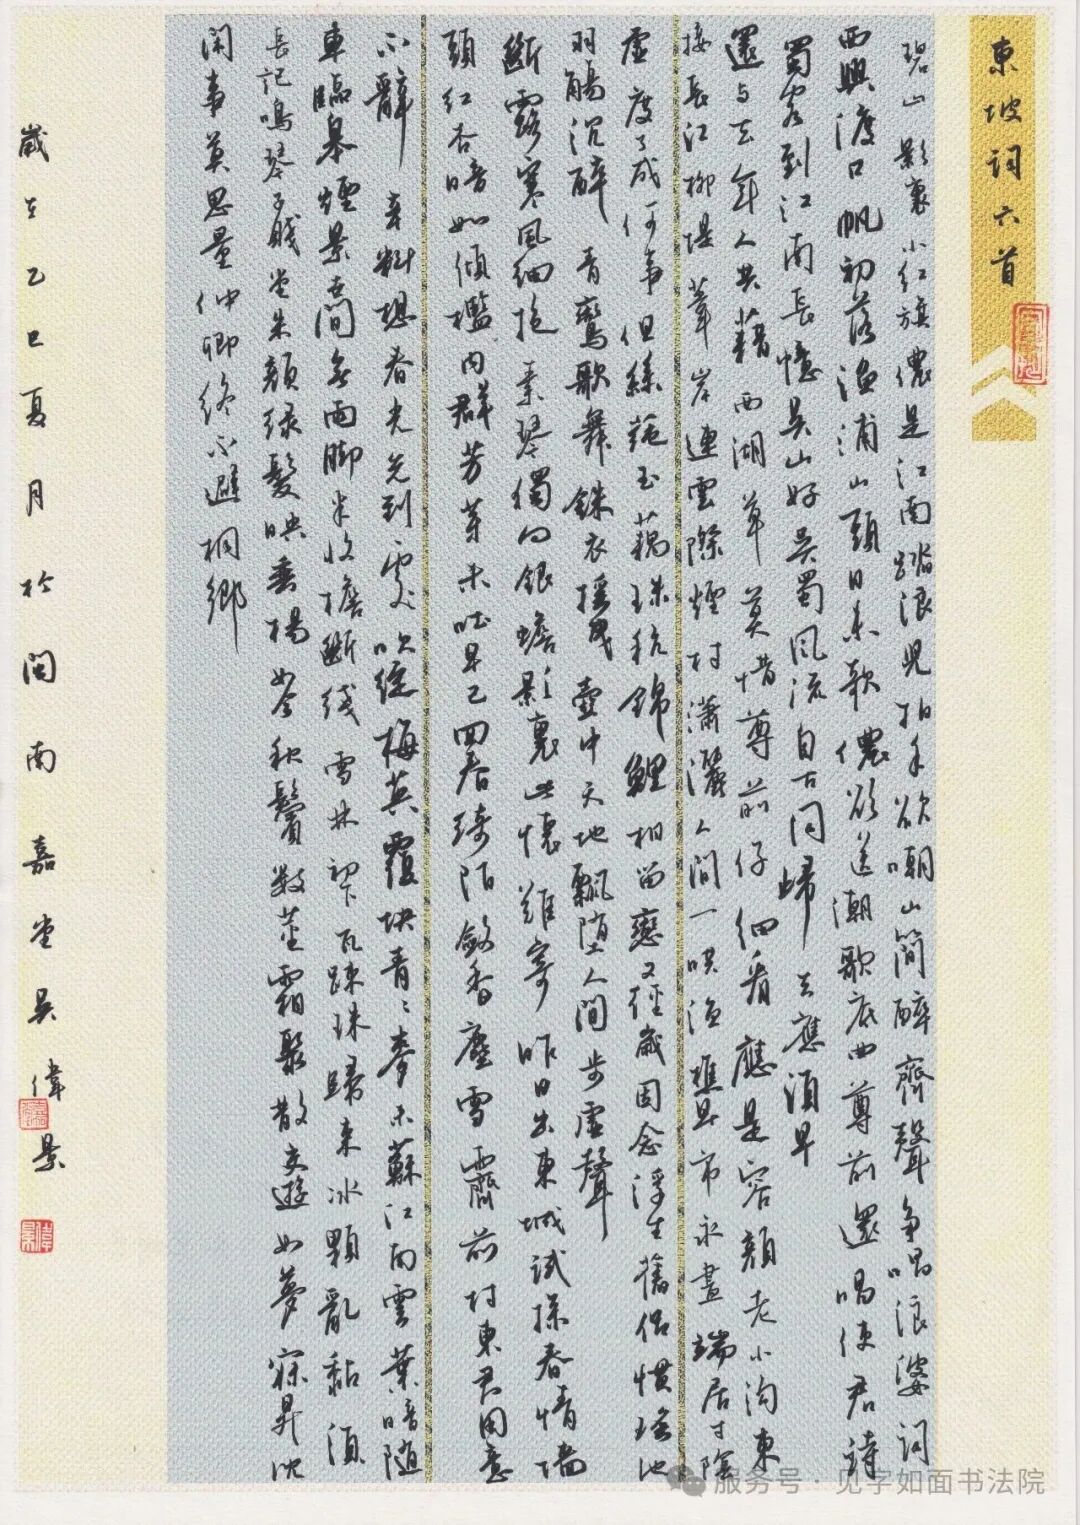 東坡词六首
碧山影裏小红旗儂是江南踏浪兒拍手欲嘲山簡醉齊聲争唱浪婆词
西興渡口帆初落渔浦山頭日未欹儂欲送潮歌底曲尊前還唱使君詩
蜀客到江南長憶吴山好吴蜀风流自古同歸去應须早
還与去年人共藉西湖草莫惜尊前仔细看應是容颜老小沟東
接長江柳堤葦岸連雲際煙村瀟灑人间一哄渔樵早市永晝端居寸陰
虚度了成何事但絲蒓玉藕珠粳錦鯉相留戀又經歲因念浮生舊侣慣瑶池
羽觴沉醉青鸞歌舞銖衣摇曳壺中天地飄堕人间步虚聲
断露寒风细抱素琴獨向銀蟾影裏此懷難寄昨日出東城試探春情墙
頭红杏暗如傾檻内群芳芽未吐早已回春綺陌斂香塵雪霽前村東君用意
不辭辛料想春光先到處吹綻梅英覆块青々麥未蘇江南雲葉暗随
車臨皋煙景世间無雨脚半收檐断线雪林初下瓦疎珠歸来冰顆亂黏须
長記鳴琴子賤堂朱颜绿髮映垂楊如今秋鬢數莖霜聚散交遊如夢寐昇沈
閑事莫思量仲卿终不避桐鄉
歲在乙巳夏月於闽南嘉堂吴偉景
服务号·见字如面书法院